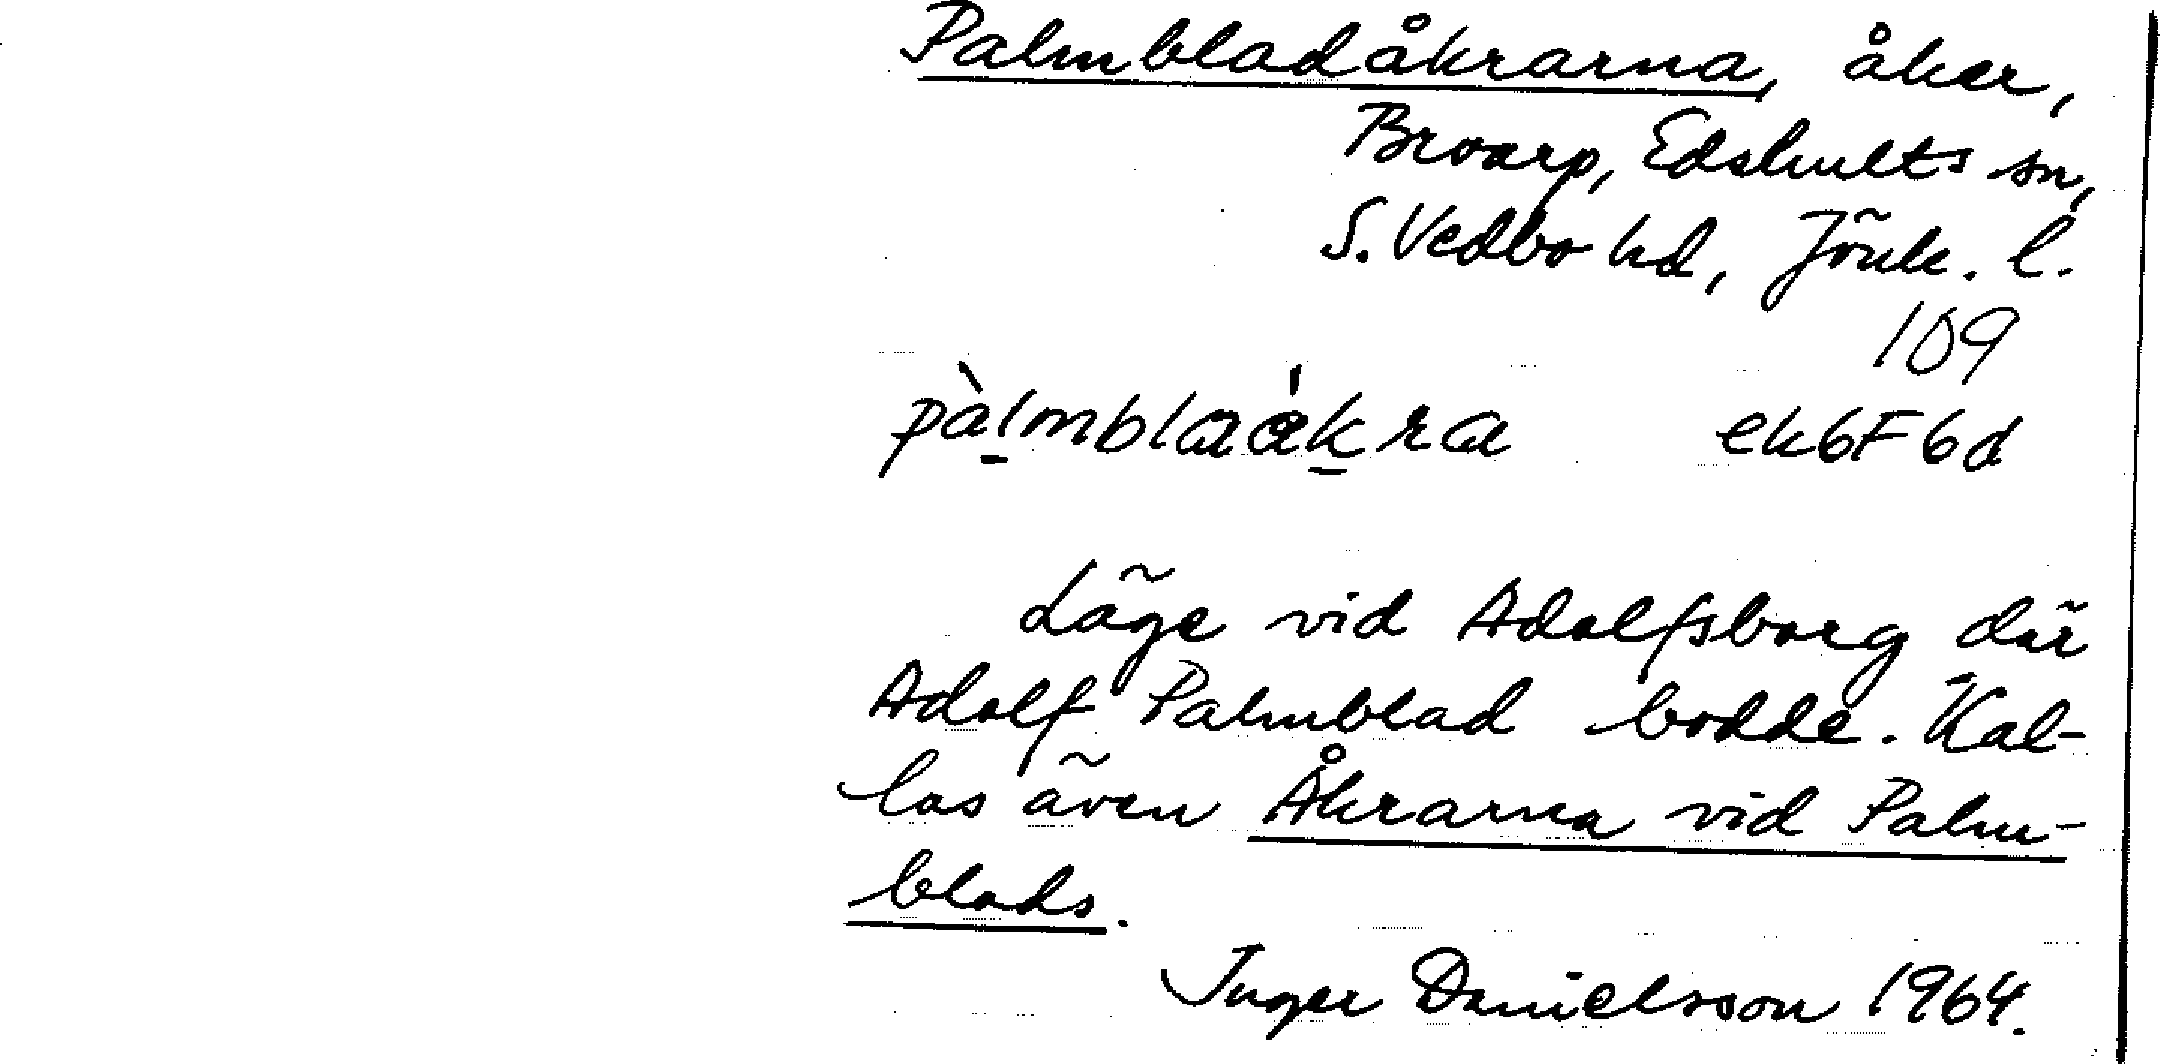 Palmbladåkrarna, åker,
Broarp, Edshults sn,
S. Vedbo hd, Jönk. l.
109
ek 6F6d
Läge vid Adolfsborg där
Adolf Palmblad bodde. Kal-
las även Åkrarna vid Palm-
blads.
Inger Danielsson 1964.